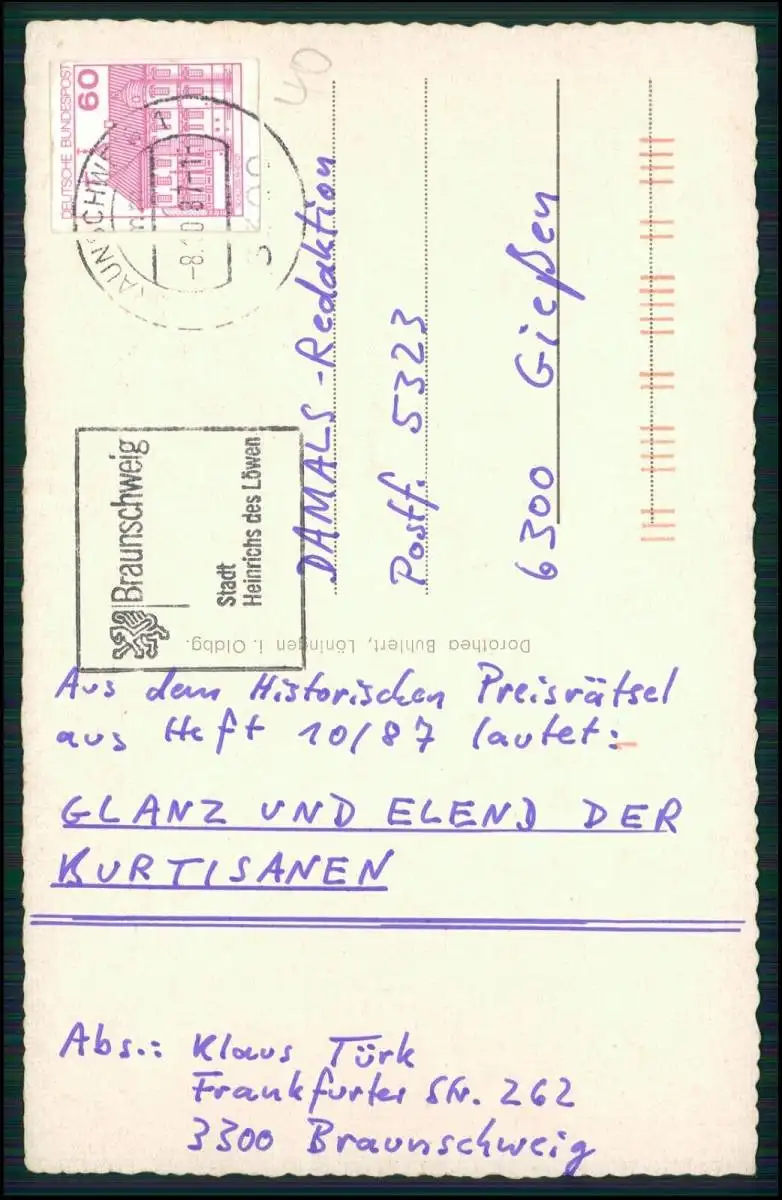 DEUTSCHE BUNDESPOST
60
40
-8.10.87-11
Braunschweig
Stadt
Heinrichs des Löwen
DAMALS-Redaktion
Postf. 5323
6300 Gießen
Dorothea Buhlert, Löningen i. Oldbg.
Aus dem Historischen Preisrätsel
aus Heft 10/87 lautet:
GLANZ UND ELEND DER
KURTISANEN
Abs.: Klaus Türk
Frankfurter Str. 262
3300 Braunschweig